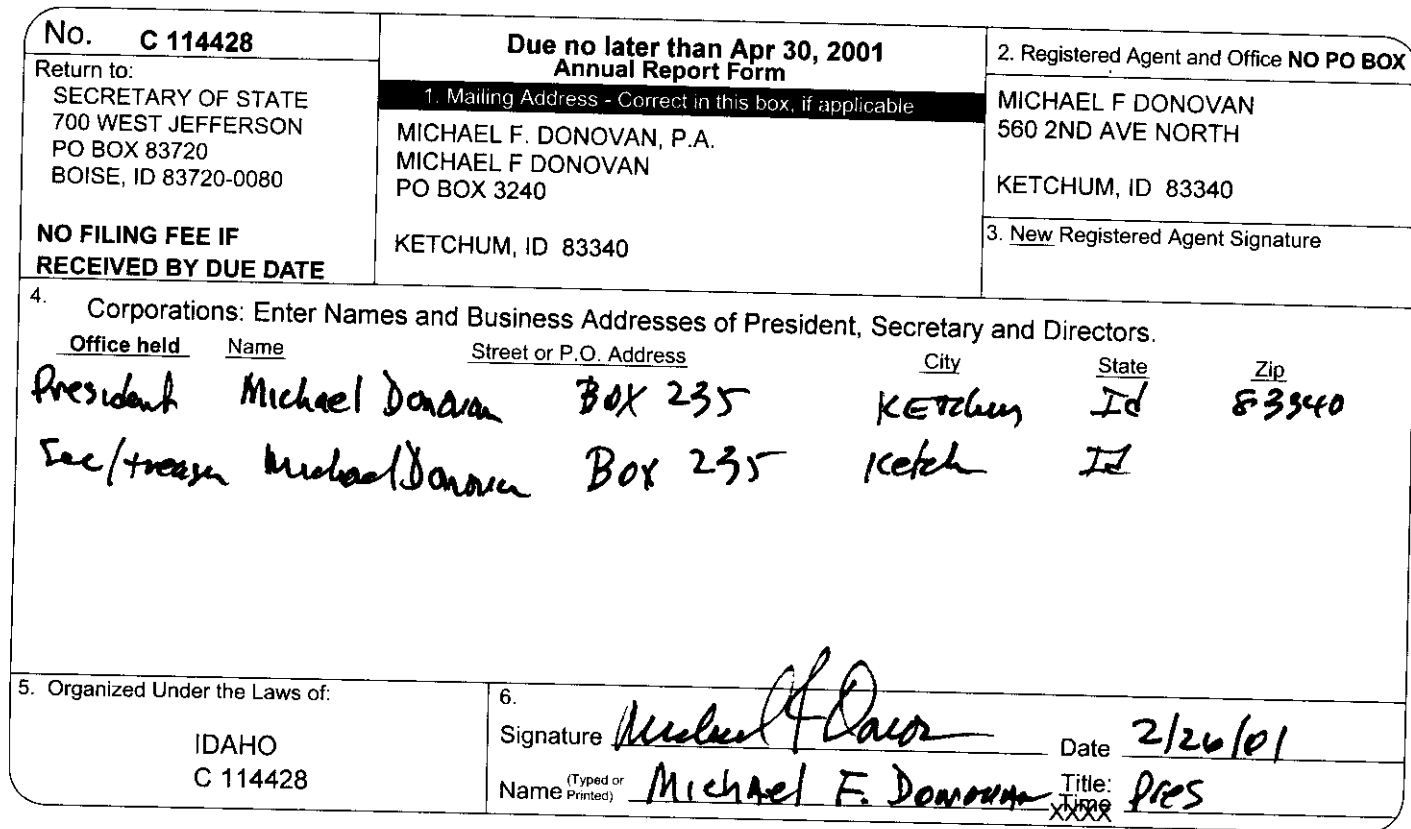 No. C 114428
Return to:
SECRETARY OF STATE
700 WEST JEFFERSON
PO BOX 83720
BOISE, ID 83720-0080
NO FILING FEE IF
RECEIVED BY DUE DATE
Due no later than Apr 30, 2001
Annual Report Form
1. Mailing Address - Correct in this box, if applicable
MICHAEL F. DONOVAN, P.A.
MICHAEL F DONOVAN
PO BOX 3240
KETCHUM, ID 83340
2. Registered Agent and Office NO PO BOX
MICHAEL F DONOVAN
560 2ND AVE NORTH
KETCHUM, ID 83340
3. New Registered Agent Signature
4. Corporations: Enter Names and Business Addresses of President, Secretary and Directors.
Office held Name Street or P.O. Address City State Zip
President Michael Donovan BOX 235 KETchum Id 83340
Sec/treasur Michael Donovan Box 235 Ketch Id
5. Organized Under the Laws of:
IDAHO
C 114428
6.
Signature Michael F Donovan Date 2/26/01
Name (Typed or Printed) Michael F. Donovan Title: Pres
XXXX Time